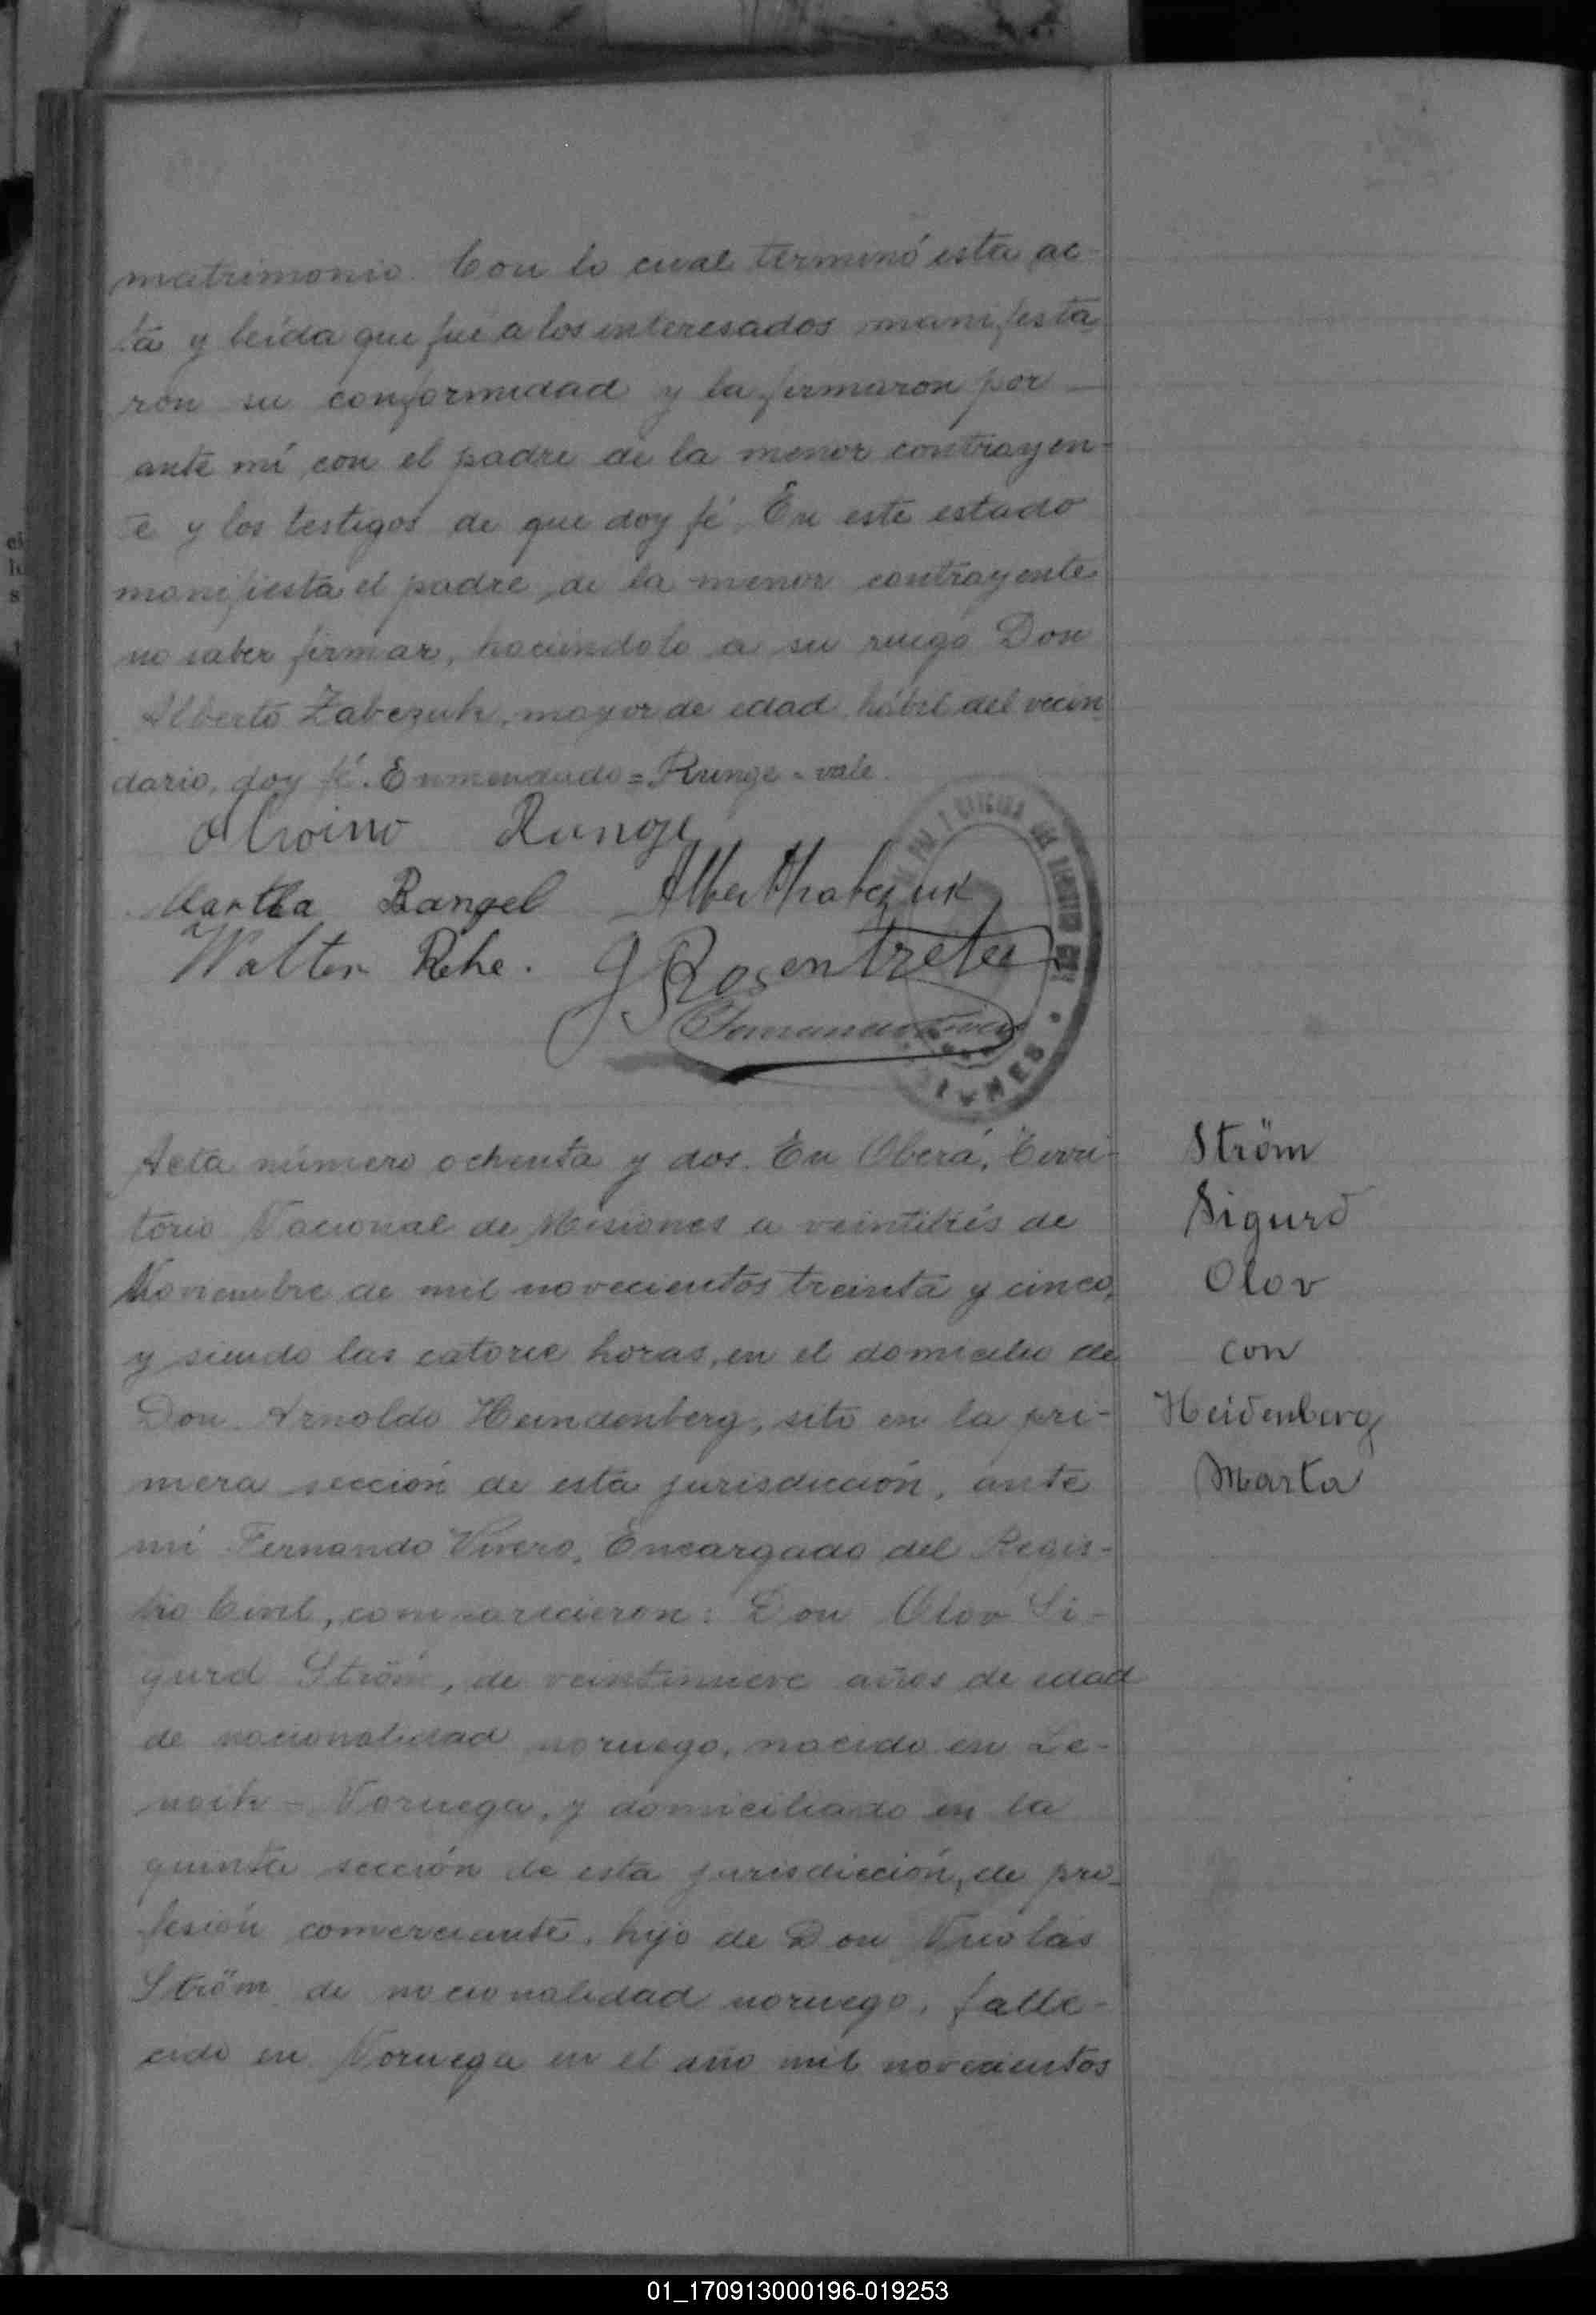 matrimonio. Con lo cual terminó esta ac-
ta y leída que fué a los interesados manifesta
ron su conformidad y la firmaron por
ante mí con el padre de la menor contrayen-
te y los testigos de que doy fé. En este estado
manifiesta el padre de la menor contrayente
no saber firmar, haciéndolo a su ruego Don
Alberto Zabczuk, mayor de edad hábil del vecin
dario, doy fé. Enmendado = Runge = vale.
Runge
Martha Rangel
Walter Rehe. J Rosentreter
MISIONES
Acta número ochenta y dos. En Oberá, Terri-
torio Nacional de Misiones a veintitrés de
Noviembre de mil novecientos treinta y cinco,
y siendo las catorce horas, en el domicilio de
Don Arnoldo Heindenberg, sito en la pri-
mera sección de esta jurisdicción, ante
mí Fernando Vivero, Encargado del Regis-
tro Civil, comparecieron: Don Olov Si-
gurd Ström, de veintinueve años de edad
de nacionalidad noruego, nacido en Le-
- Noruega, y domiciliado en la
quinta sección de esta jurisdicción, de pro-
fesión comerciante, hijo de Don Nicolás
Ström de nacionalidad noruego, falle-
cido en Noruega en el año mil novecientos
Ström
Sigurd
Olov
con
Heidenberg
Marta
01_170913000196-019253